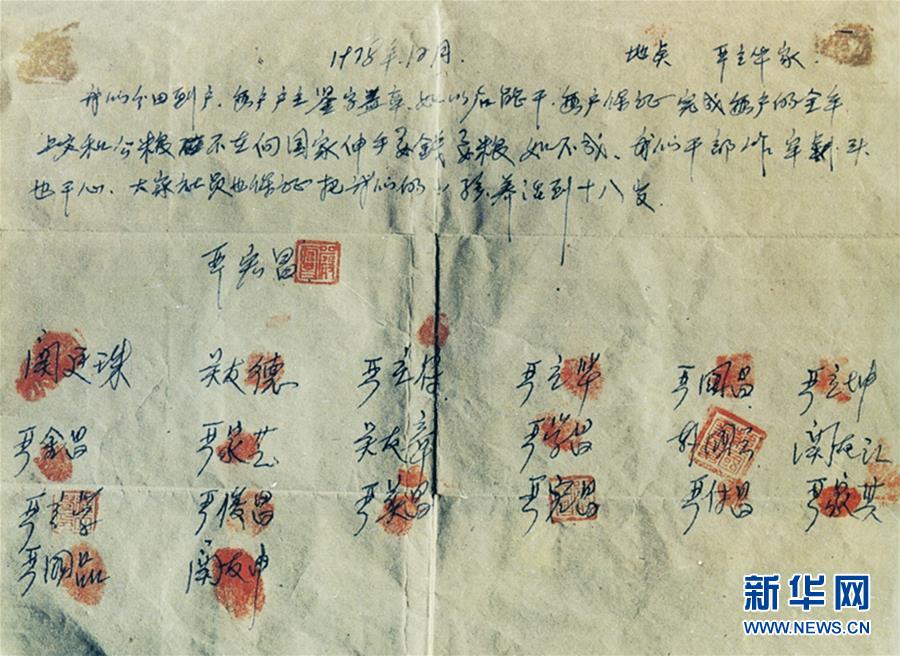 1978年12月. 地点 严立华家.
我们分田到户. 每户户主签字盖章. 如以后能干. 每户保证完成每户的全年
上交和公粮 不在向国家伸手要钱要粮 如不成. 我们干部作牢刹头
也干心. 大家社员也保证把我们的小孩养活到十八岁.
严宏昌
関廷珠 关友德 严立符 严立华 严国昌 严立坤
严金昌 严家芝 关友章 严学昌 韩国云 関友江
严立学 严俊昌 严美昌 严宏昌 严付昌 严家其
严国品 関友申
新华网
WWW.NEWS.CN